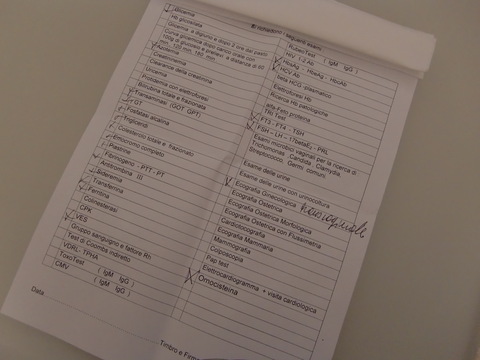 Si richiedono i seguenti esami:
Glicemia
Hb glicosilata
Glicemia a digiuno e dopo 2 ore dai pasti
Curva glicemica dopo carico orale con
100g di glucosio e prelievi a distanza di 60
min., 120 min. 180 min.
Azotemia
Creatininemia
Clearance della creatinina
Uricemia
Protidemia con elettroforesi
Bilirubina totale e frazionata
Transaminasi (GOT GPT)
GT
Fosfatasi alcalina
Trigliceridi
Colesterolo totale e frazionato
Emocromo completo
Piastrine
Fibrinogeno - PTT - PT
Antitrombina III
Sideremia
Transferrina
Ferritina
Colinesterasi
CPK
VES
Gruppo sanguigno e fattore Rh
Test di Coombs indiretto
VDRL - TPHA
ToxoTest ( IgM IgG )
CMV ( IgM IgG )
Data
RubeoTest ( IgM IgG )
HIV 1-2 Ab
HbsAg - HbeAg - HbcAb
HCV Ab
beta HCG plasmatico
Elettroforesi Hb
Ricerca Hb patologiche
alfa-Feto proteina
Tri Test
FT3 - FT4 - TSH
FSH - LH - 17betaE2 - PRL
Esami microbio vaginali per la ricerca di
Trichomonas Candida Clamydia,
Streptococco, Germi comuni
Esame delle urine
Esame delle urine con urinocoltura
Ecografia Ginecologica transvaginale
Ecografia Ostetrica
Ecografia Ostetrica Morfologica
Ecografia Ostetrica con Flussimetria
Cardiotocografia
Ecografia Mammaria
Mammografia
Colposcopia
Pap test
Elettrocardiogramma + visita cardiologica
Omocisteina
Timbro e Firma